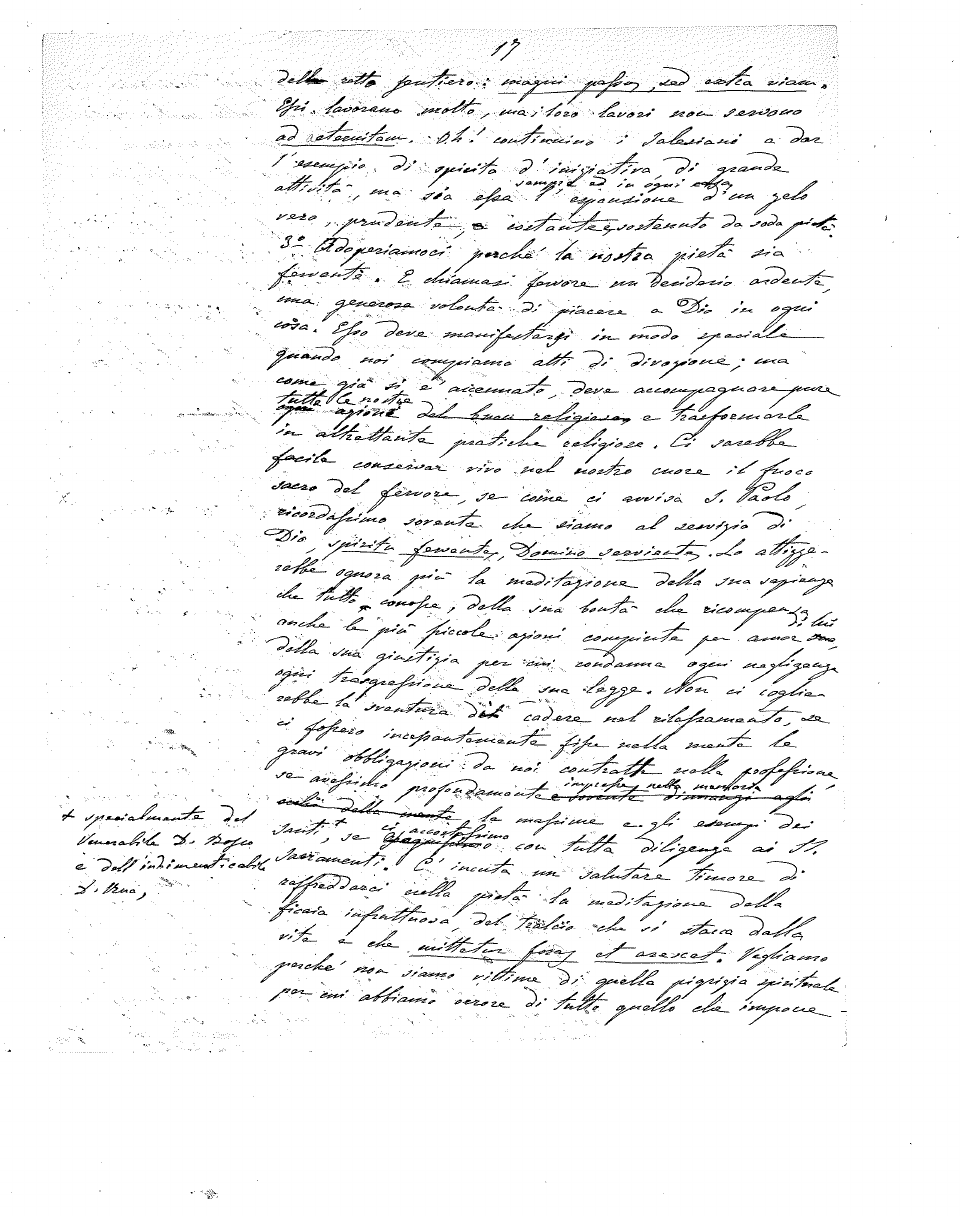 17
dell retto sentiero: magni passus, sed extra viam.
Essi lavorano molto, ma i loro lavori non servono
ad aeternitam. Oh! continuino i Salesiani a dar
l'esempio di spirito d'iniziativa, di grande
sempre ed in ogni cosa
attività, ma sia essa l'espansione d'un zelo
vero, prudente, e costante, sostenuto da soda pietà.
3º Adoperiamoci perché la nostra pietà sia
fervente. E chiamasi fervore un desiderio ardente,
una generosa volontà di piacere a Dio in ogni
cosa. Esso deve manifestarsi in modo speciale
quando noi compiamo atti di divozione; ma
come già si è accennato, deve accompagnare pure
tutte le nostre
ogni azioni del buon religioso, e trasformarle
in altrettante pratiche religiose. Ci sarebbe
facile conservar vivo nel nostro cuore il fuoco
sacro del fervore, se come ci avvisa S. Paolo,
ricordassimo sovente che siamo al servizio di
Dio, spiritu ferventes, Domino servientes. Lo attizze-
rebbe ognora più la meditazione della sua sapienza
che tutto conosce, della sua bontà che ricompensa
di lui
anche le più piccole azioni compiute per amor suo,
della sua giustizia per cui condanna ogni negligenza
ogni trasgressione della sua legge. Non ci coglie-
rebbe la sventura di cadere nel rilassamento, se
ci fossero incessantemente fisse nella mente le
gravi obbligazioni da noi contratte nella professione,
impresse nella memoria
se avessimo profondamente e sovente dinnanzi agli
occhi della mente le massime e gli esempi dei
ci accostassimo
Santi, + se con tutta diligenza ai SS.
Sacramenti. C'incuta un salutare timore di
raffreddarci nella pietà la meditazione della
ficaia infruttuosa, del tralcio che si stacca dalla
vite e che mittetur foras et arescet. Vegliamo
perché non siamo vittime di quella pigrizia spirituale
per cui abbiamo orrore di tutto quello che impone
+ specialmente del
Venerabile D. Bosco
e dell'indimenticabile
D. Rua,